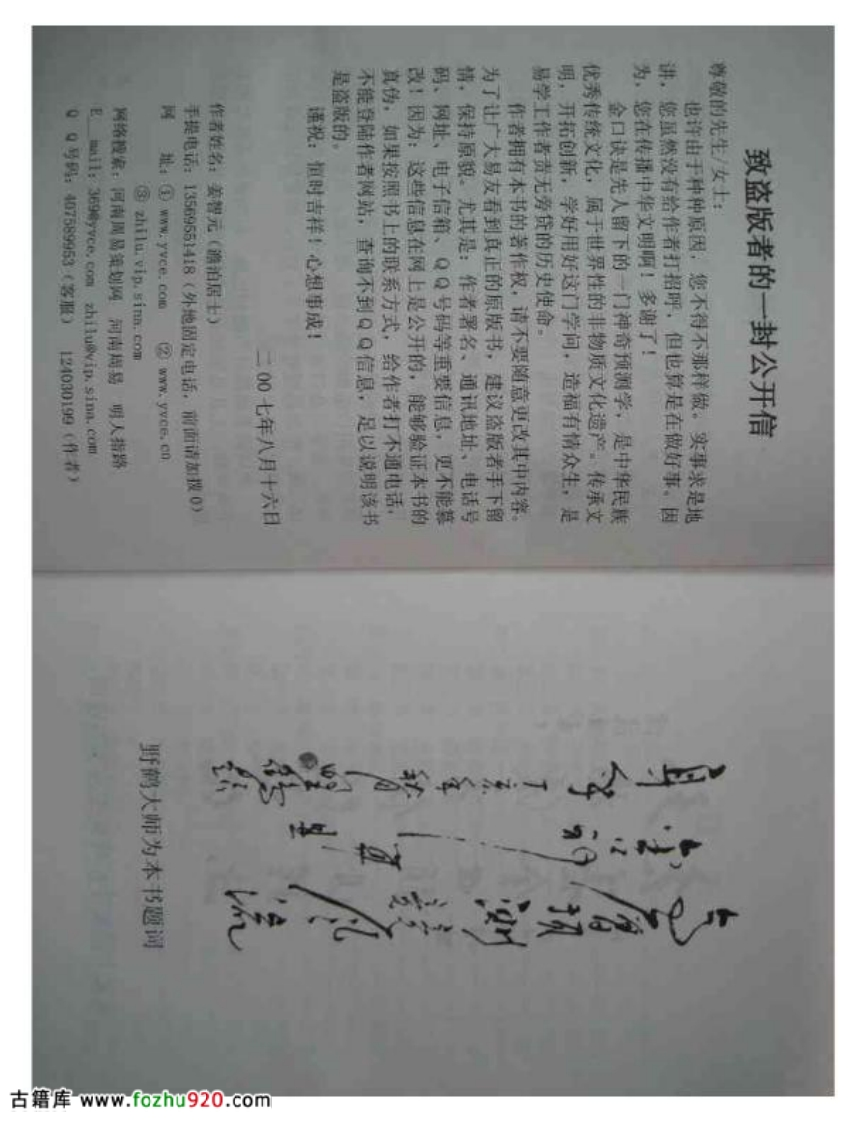 致盗版者的一封公开信
尊敬的先生/女士：
也许由于种种原因，您不得不那样做。实事求是地
讲，您虽然没有给作者打招呼，但也算是在做好事。因
为，您在传播中华文明啊！多谢了！
金口诀是先人留下的一门神奇预测学，是中华民族
优秀传统文化，属于世界性的非物质文化遗产。传承文
明，开拓创新，学好用好这门学问，造福有情众生，是
易学工作者责无旁贷的历史使命。
作者拥有本书的著作权，请不要随意更改其中内容。
为了让广大易友看到真正的原版书，建议盗版者手下留
情，保持原貌。尤其是：作者署名、通讯地址、电话号
码、网址、电子信箱、ＱＱ号码等重要信息，更不能篡
改！因为：这些信息在网上是公开的，能够验证本书的
真伪，如果按照书上的联系方式，给作者打不通电话，
不能登陆作者网站，查询不到ＱＱ信息，足以说明该书
是盗版的。
谨祝：恒时吉祥！心想事成！
二00七年八月十六日
作者姓名：姜智元（澹泊居士）
手提电话：13569551418（外地固定电话，前面请加拨0）
网 址：① www.yvce.com ② www.yvce.cn
③ zhilu.vip.sina.com
网络搜索：河南周易策划网 河南周易 明人指路
E__mail：369@yvce.com zhilu@vip.sina.com
Ｑ Ｑ号码：407589953（客服） 124030199（作者）
野鹤大师为本书题词
古籍库 www.fozhu920.com